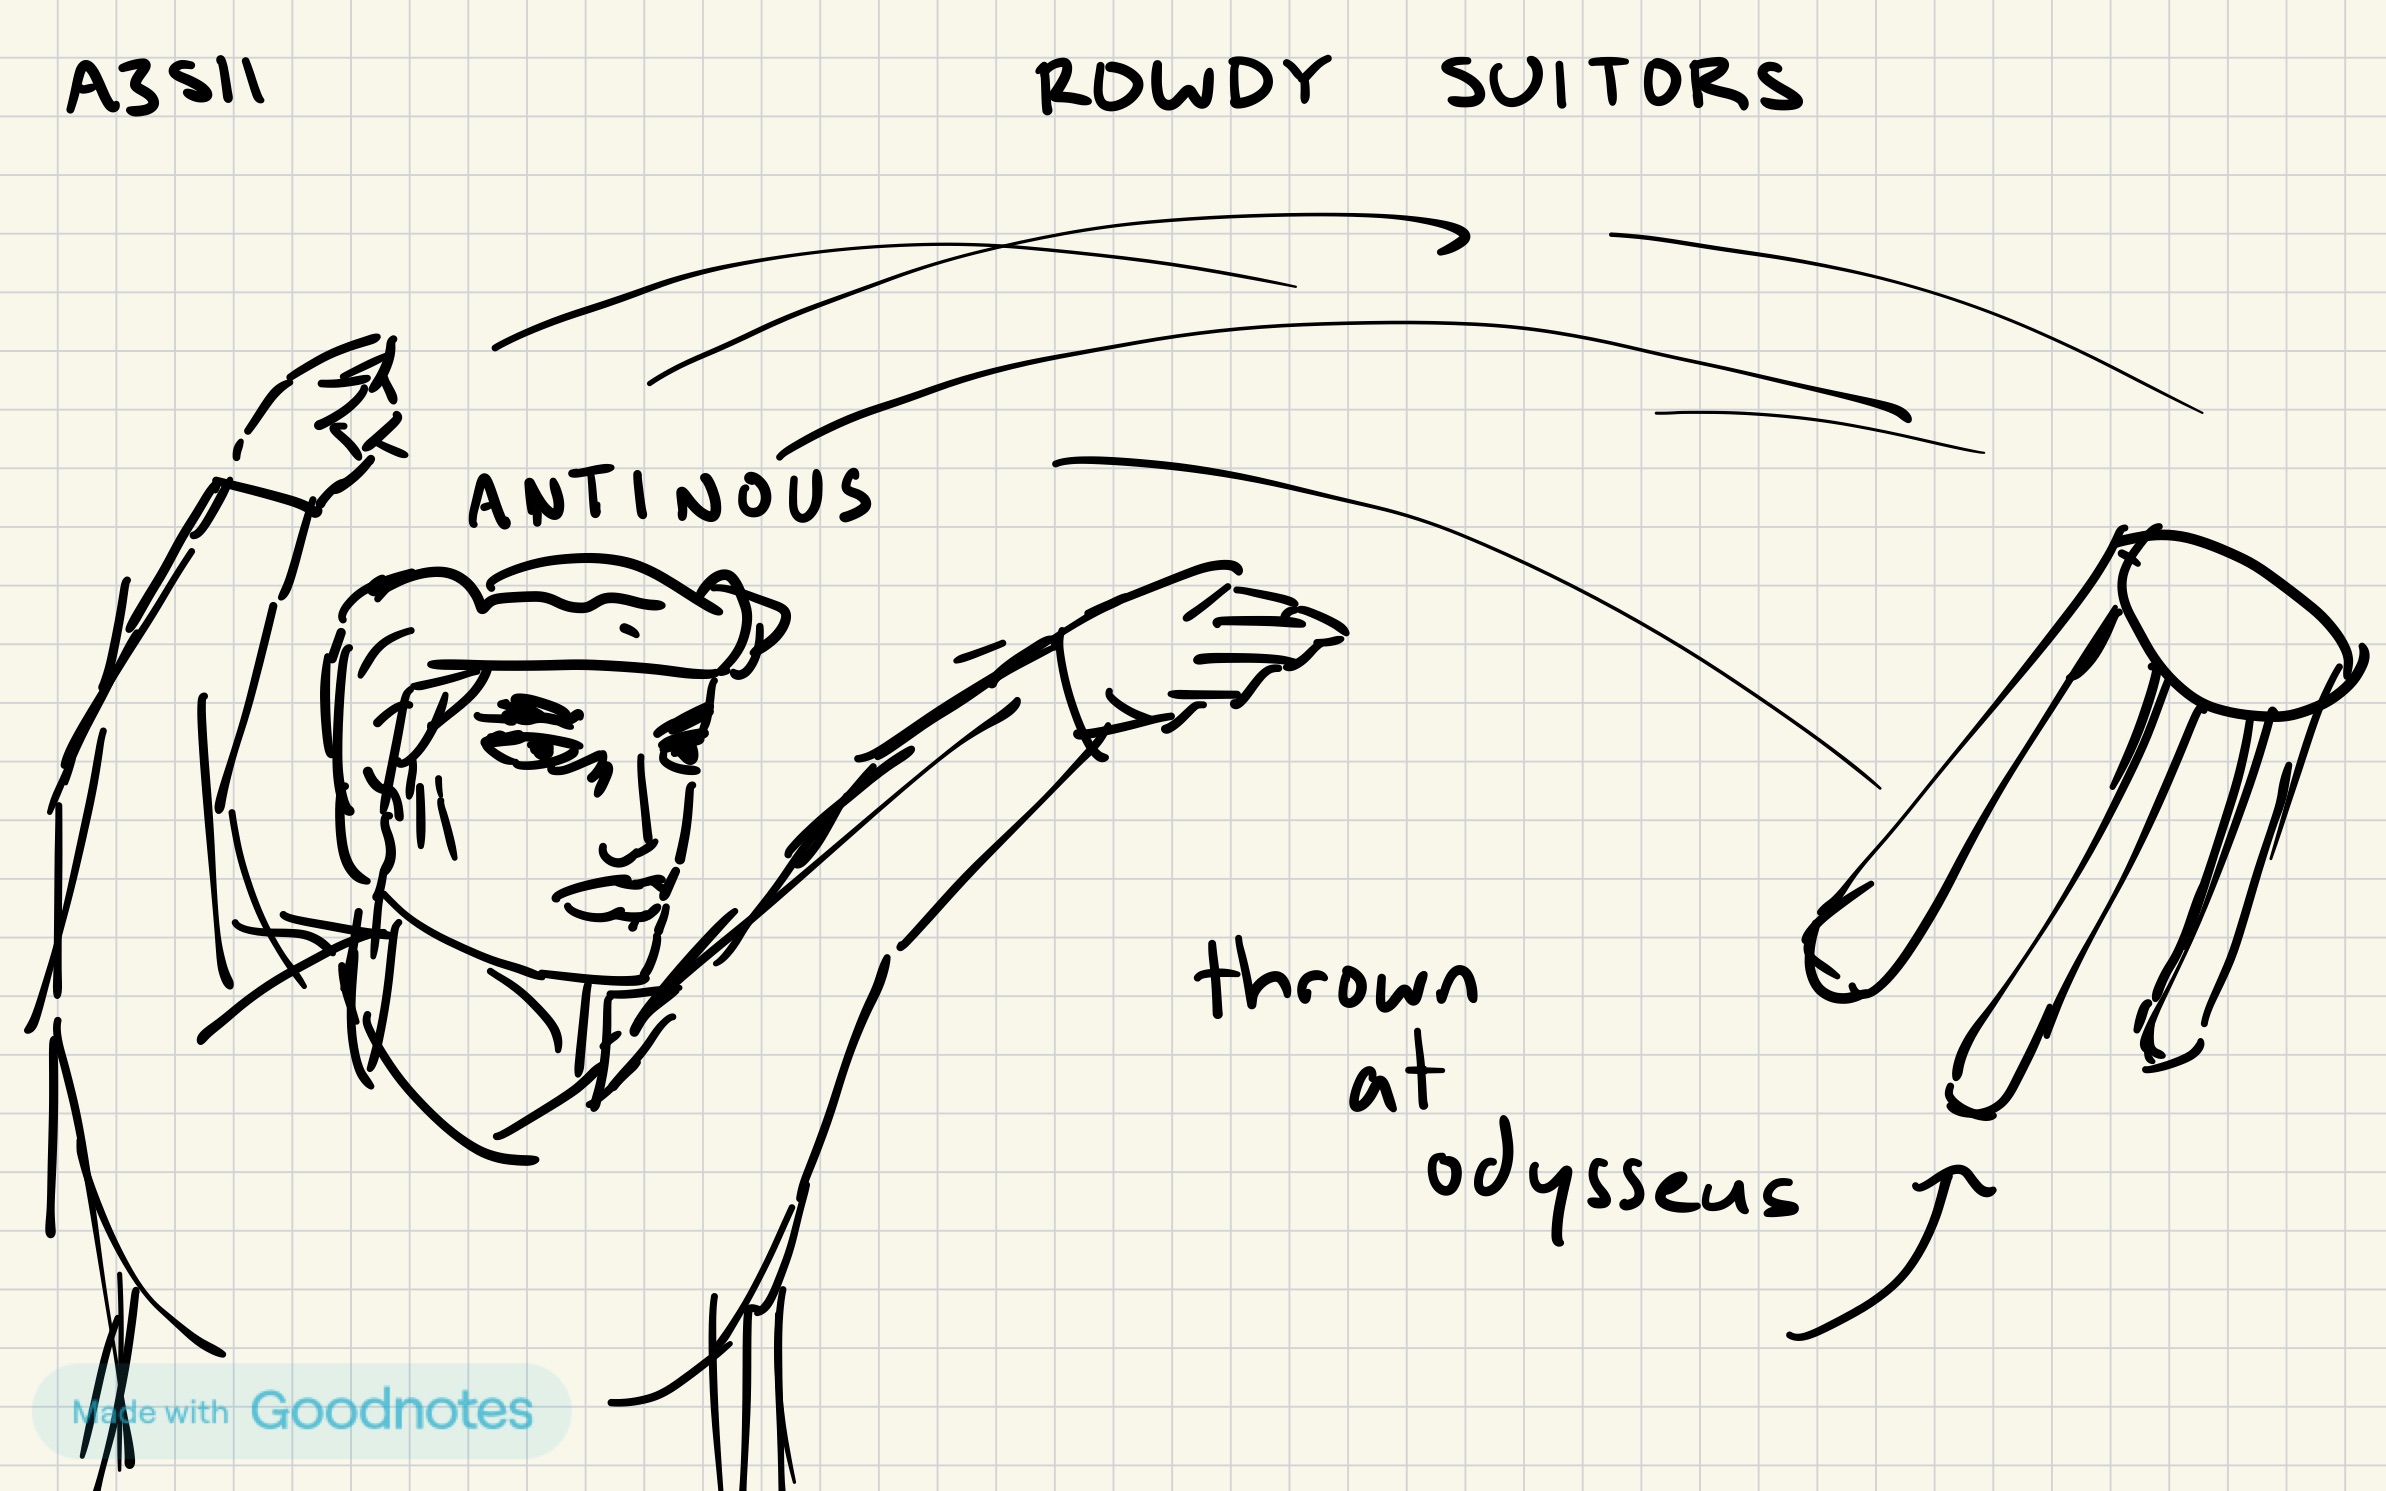 A3S11
ROWDY SUITORS
ANTINOUS
thrown
at
odysseus
Made with Goodnotes